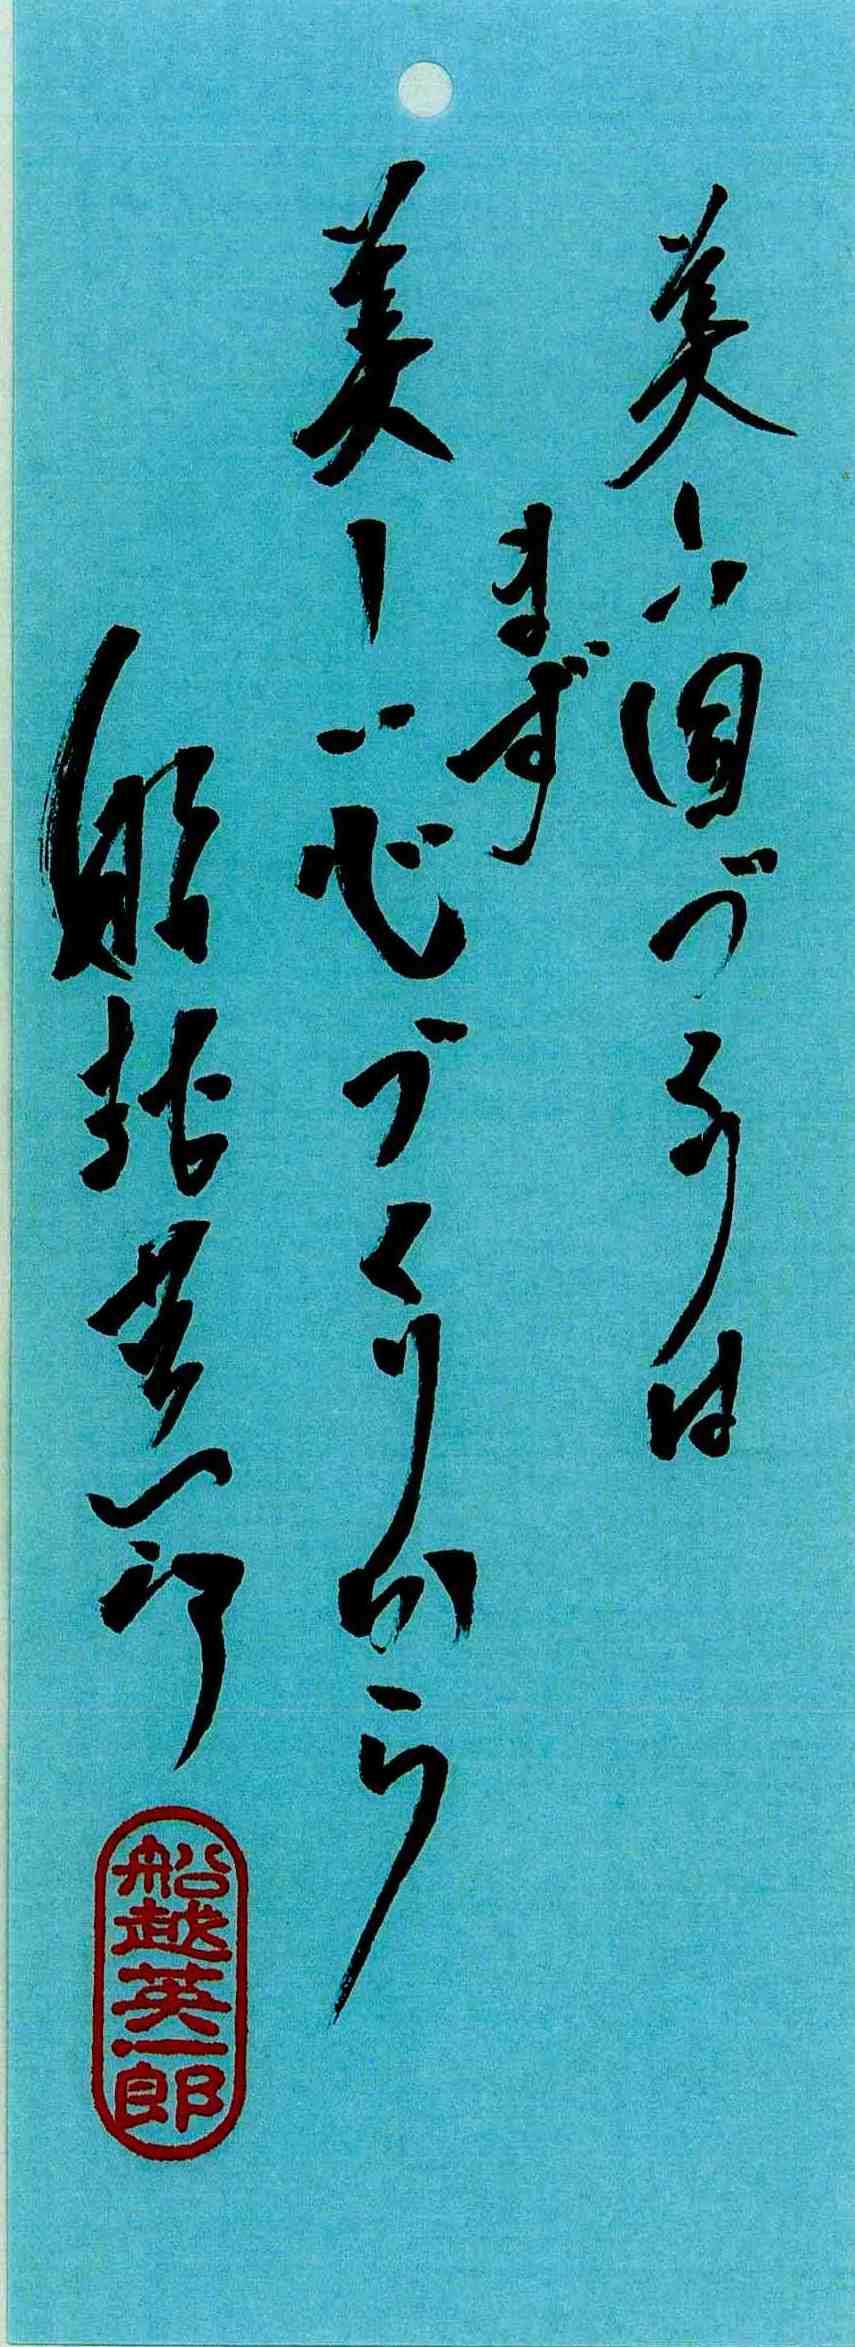 美しい国づくりは
まず
美しい心づくりから
船越英一郎
船越英一郎